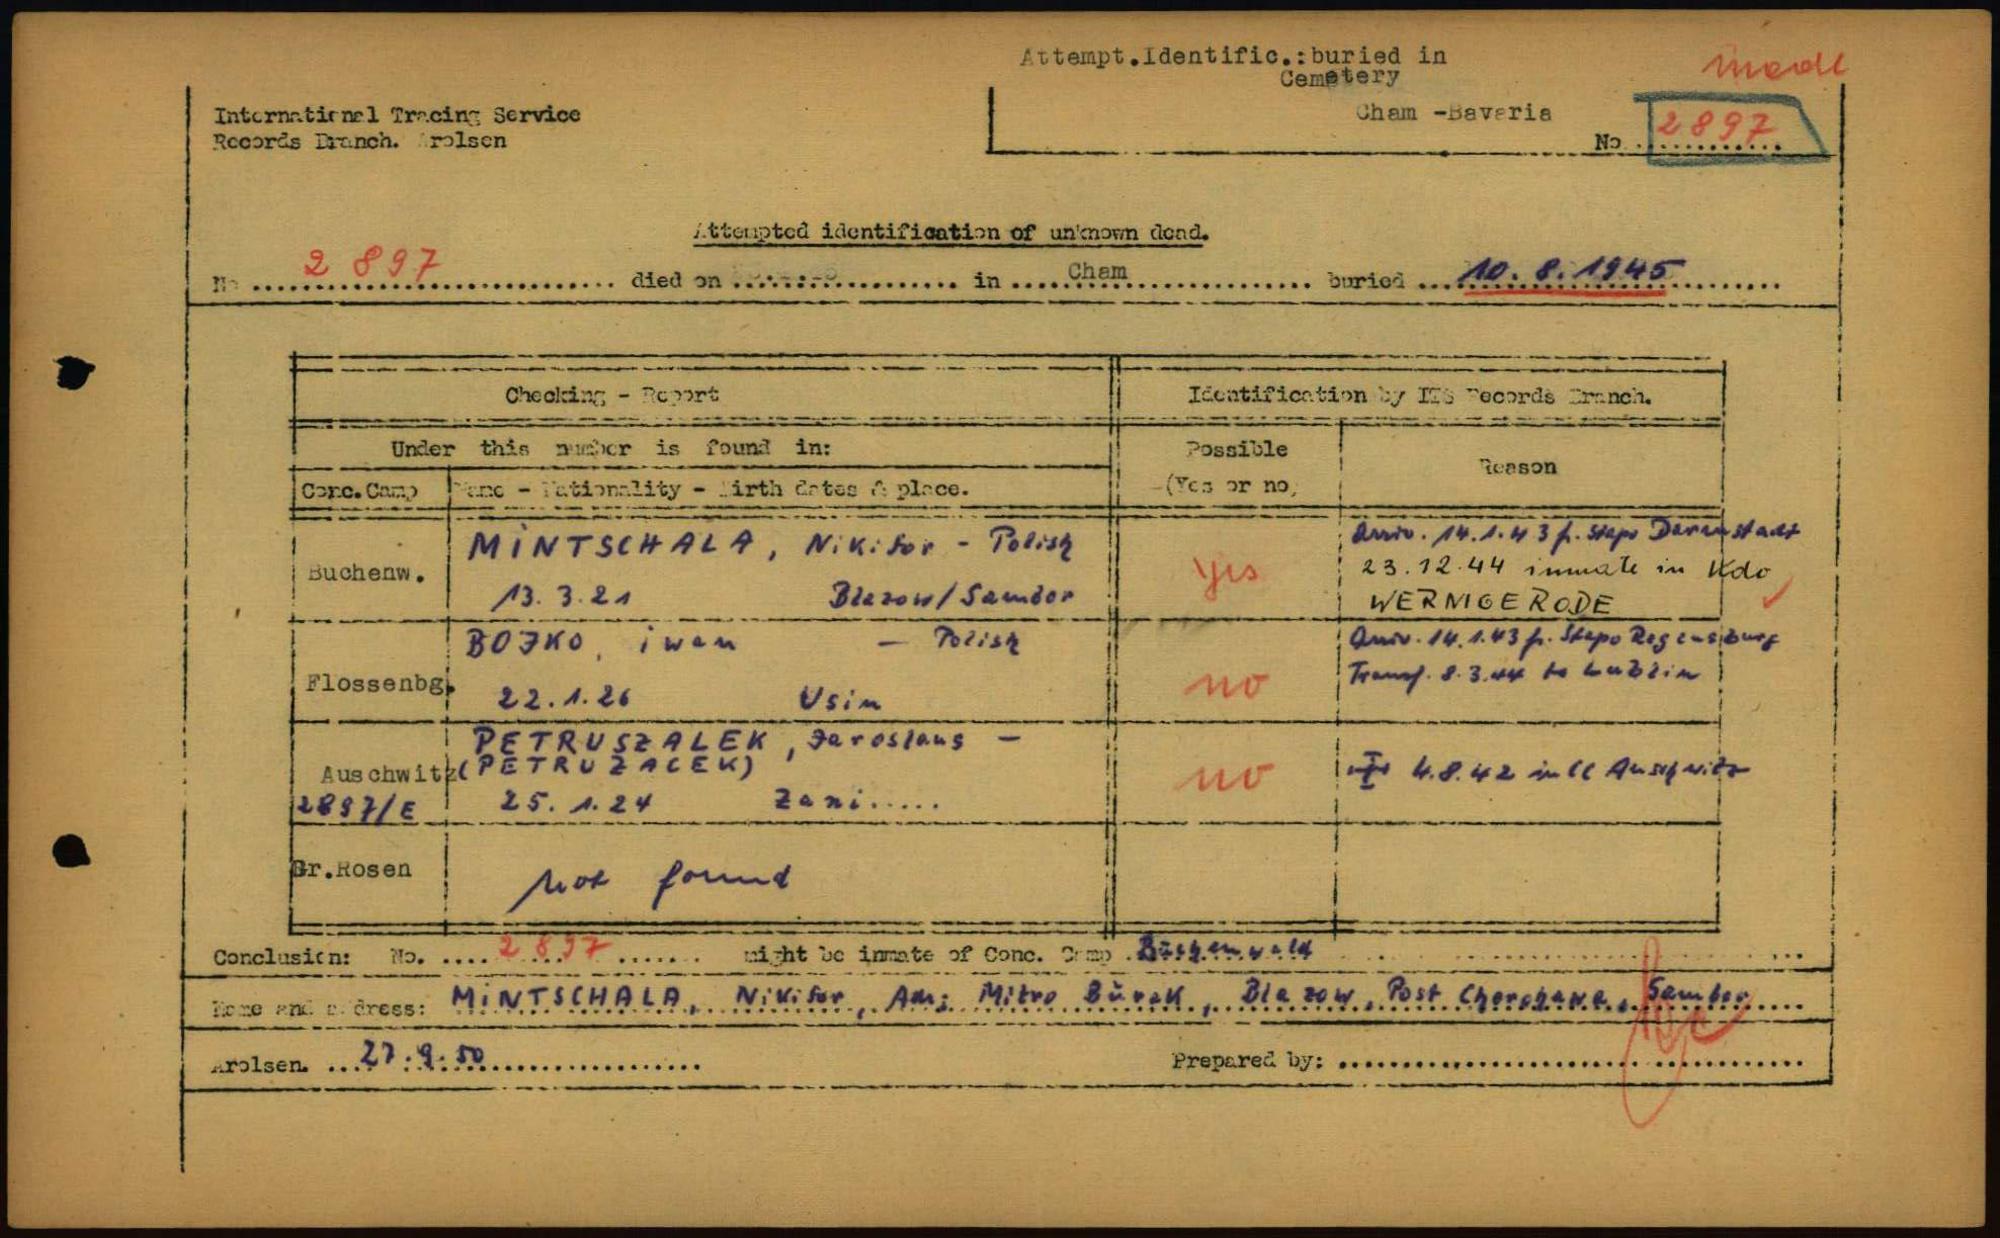 Attempt.Identific.:buried in
Cemetery
Cham -Bavaria
International Tracing Service
Records Branch. Arolsen
No 2897
Attempted identification of unknown dead.
No 2 897 died on in Cham buried 10.8.1945
Checking - Report
Identification by ITS Records Branch.
Under this number is found in:
Possible
(Yes or no)
Reason
Conc.Camp Name - Nationality - Birth dates & place.
Buchenw.
MINTSCHALA, Nikifor - Polish
13.3.21 Blazow/Sambor
yes
Arriv. 14.1.43 f. Stapo Darmstadt
23.12.44 inmate in Kdo
WERNIGERODE
Flossenbg.
BOJKO, iwan - Polish
22.1.26 Usin
no
Arriv. 14.1.43 f. Stapo Regensburg
Transf. 8.3.44 to Lublin
Auschwitz
2897/E
PETRUSZALEK, Jaroslaus -
(PETRUZACEK)
25.1.24 Zani.....
no
4.8.42 in CC Auschwitz
Gr.Rosen
not found
Conclusion: No. 2897 might be inmate of Conc. Camp Buchenwald
Name and address: MINTSCHALA, Nikifor, Mitro Burak, Blazow, Post Sambor
Arolsen. 27.9.50 Prepared by: